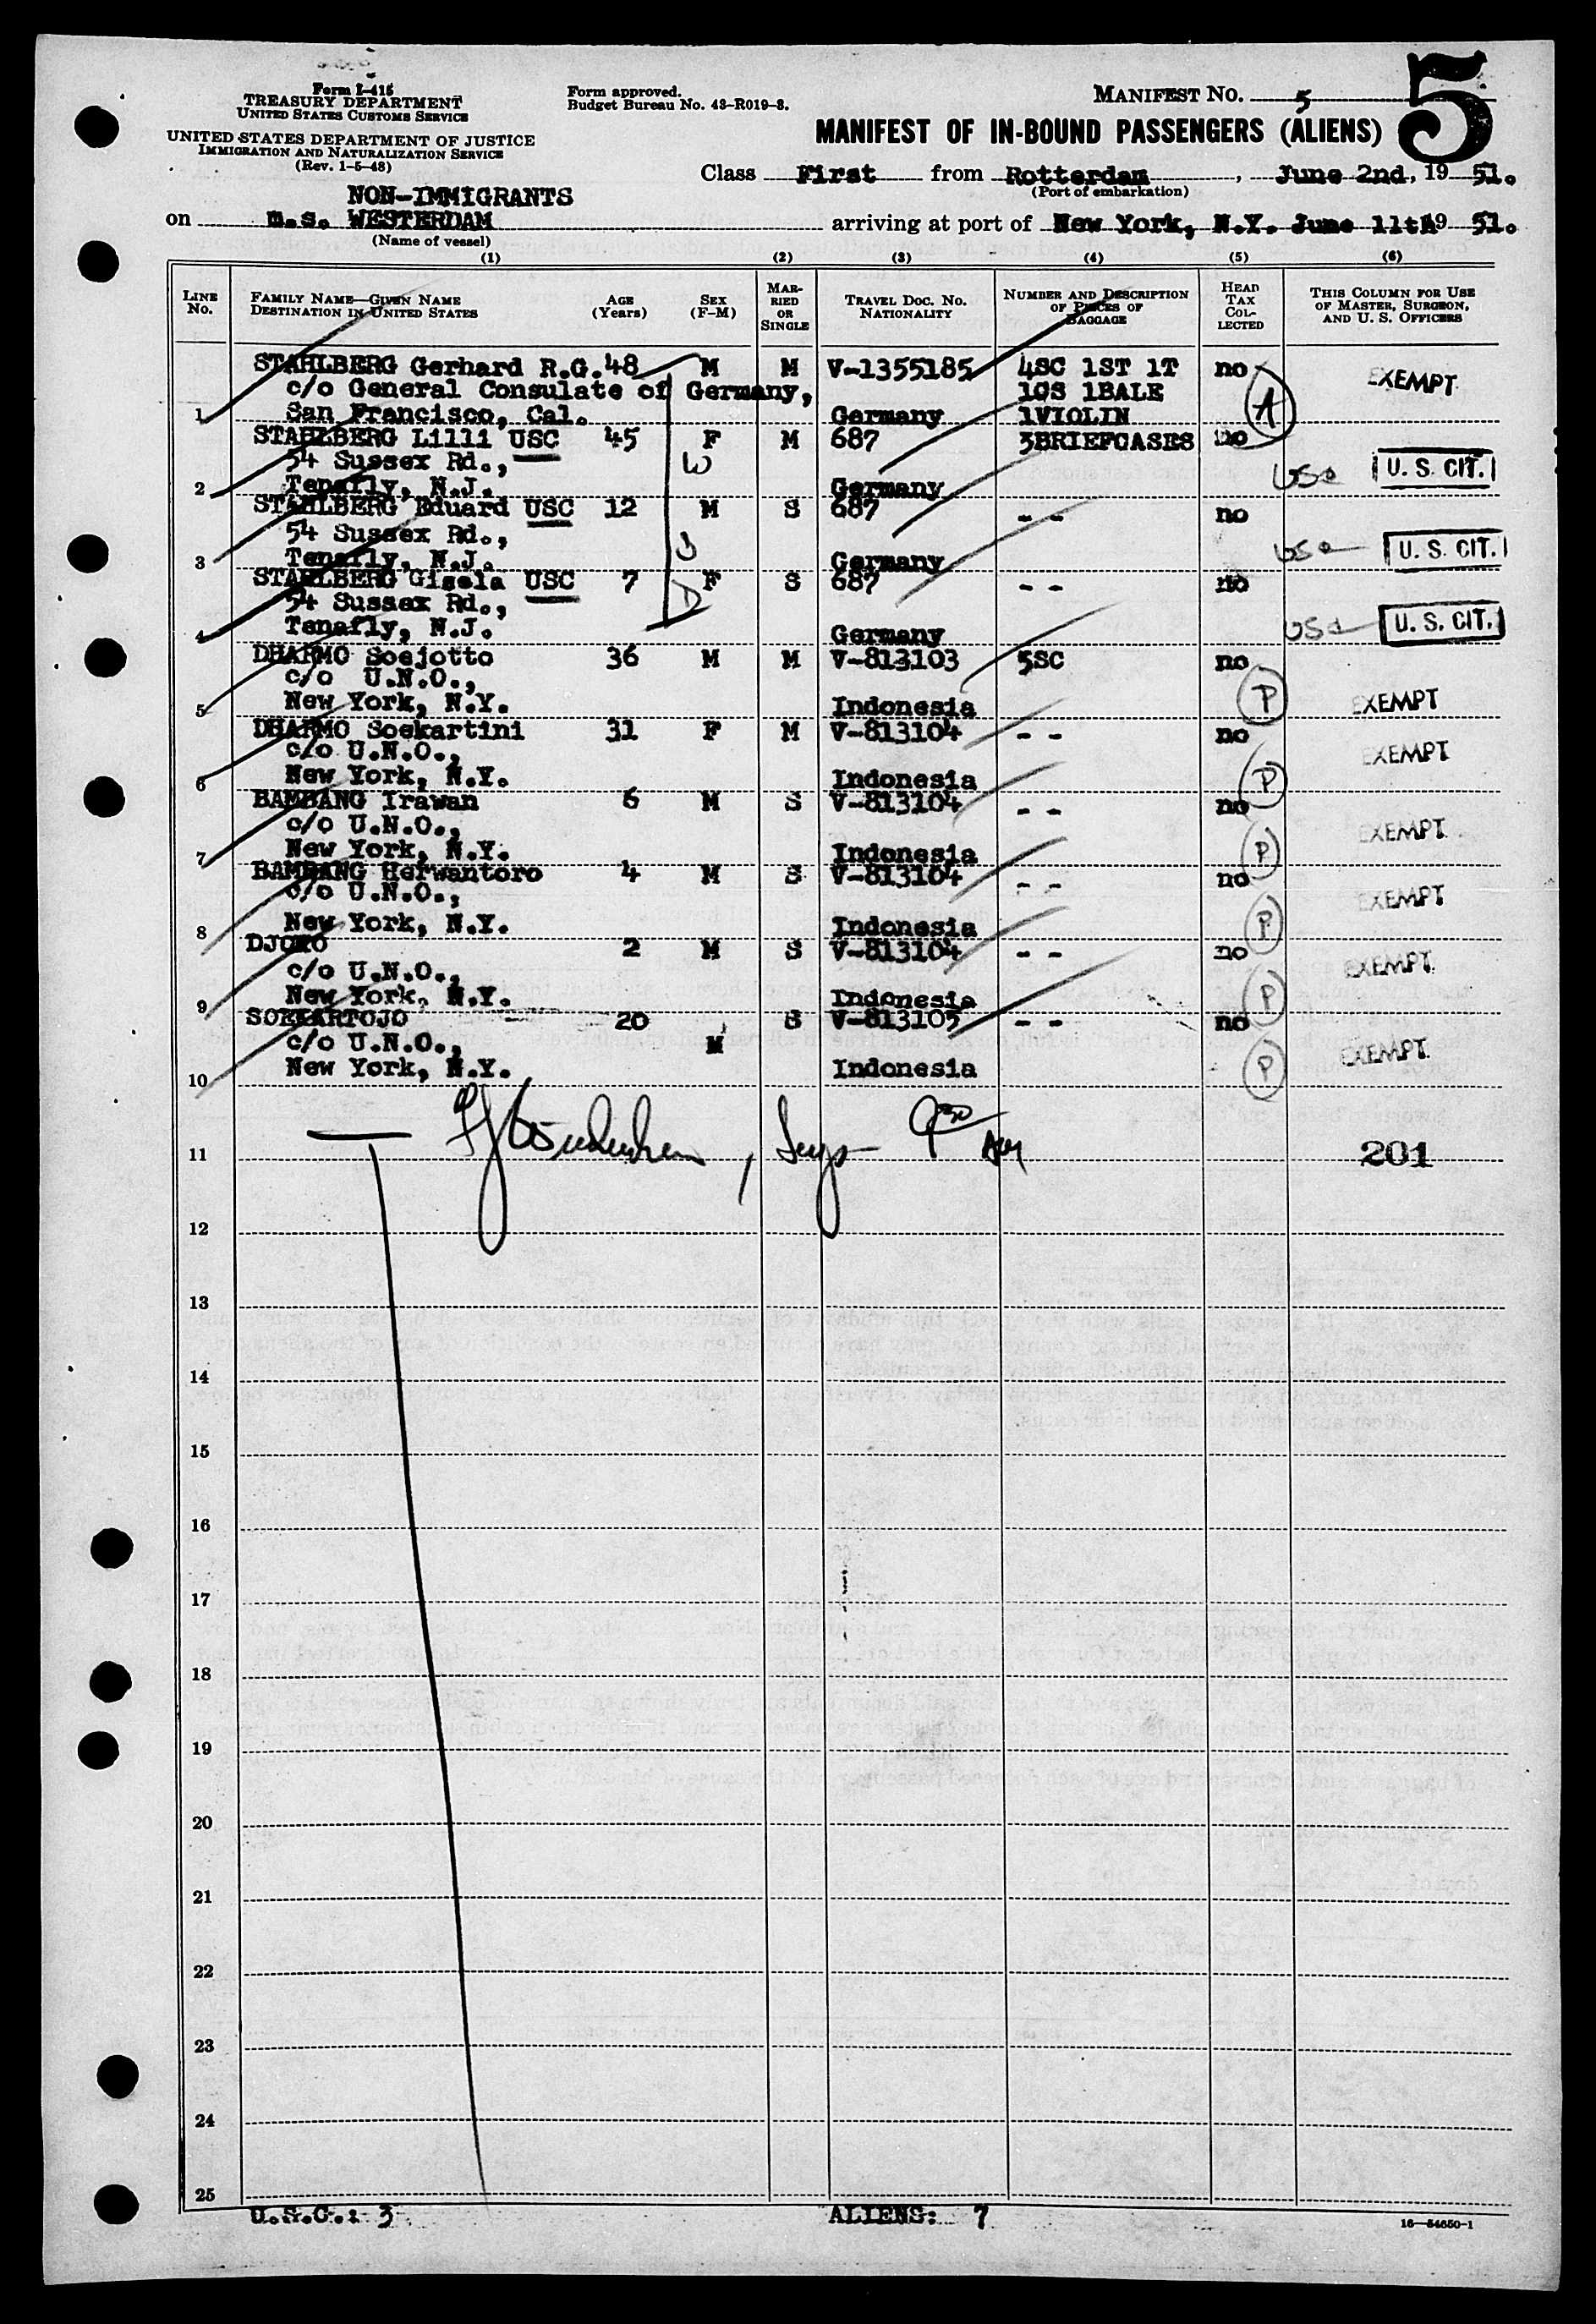 Form I-415
TREASURY DEPARTMENT
UNITED STATES CUSTOMS SERVICE
UNITED STATES DEPARTMENT OF JUSTICE
IMMIGRATION AND NATURALIZATION SERVICE
(Rev. 1-5-48)
Form approved.
Budget Bureau No. 43-R019-3.
MANIFEST NO. 5
5
MANIFEST OF IN-BOUND PASSENGERS (ALIENS)
Class First from Rotterdam, June 2nd, 19 51.
(Port of embarkation)
NON-IMMIGRANTS
on m.s. WESTERDAM arriving at port of New York, N.Y. June 11th 19 51.
(Name of vessel)
(1) (2) (3) (4) (5) (6)
LINE NO.
FAMILY NAME—GIVEN NAME
DESTINATION IN UNITED STATES
AGE (Years)
SEX (F-M)
MARRIED OR SINGLE
TRAVEL DOC. NO. NATIONALITY
NUMBER AND DESCRIPTION OF PIECES OF BAGGAGE
HEAD TAX COLLECTED
THIS COLUMN FOR USE OF MASTER, SURGEON, AND U. S. OFFICERS
STAHLBERG Gerhard R.G. 48 M M V-1355185 4SC 1ST 1T no EXEMPT
c/o General Consulate of Germany, 1CS 1BALE A
1 San Francisco, Cal. Germany 1VIOLIN
STAHLBERG Lilli USC 45 F M 687 3BRIEFCASES no
54 Sussex Rd., W USC U. S. CIT.
2 Tenafly, N.J. Germany
STAHLBERG Eduard USC 12 M S 687 - - no
54 Sussex Rd., S USC U. S. CIT.
3 Tenafly, N.J. Germany
STAHLBERG Gisela USC 7 F S 687 - - no
54 Sussex Rd., D USC U. S. CIT.
4 Tenafly, N.J. Germany
DHARMO Soejotto 36 M M V-813103 5SC no
c/o U.N.O., P EXEMPT
5 New York, N.Y. Indonesia
DHARMO Soekartini 31 F M V-813104 - - no
c/o U.N.O., P EXEMPT
6 New York, N.Y. Indonesia
BAMBANG Irawan 6 M S V-813104 - - no
c/o U.N.O., P EXEMPT
7 New York, N.Y. Indonesia
BAMBANG Herwantoro 4 M S V-813104 - - no
c/o U.N.O., P EXEMPT
8 New York, N.Y. Indonesia
DJOKO 2 M S V-813104 - - no
c/o U.N.O., P EXEMPT
9 New York, N.Y. Indonesia
SOEKARTOJO 20 S V-813105 - - no
c/o U.N.O., M P EXEMPT
10 New York, N.Y. Indonesia
11 201
12
13
14
15
16
17
18
19
20
21
22
23
24
25
U.S.C.: 3 ALIENS: 7
16—54650-1